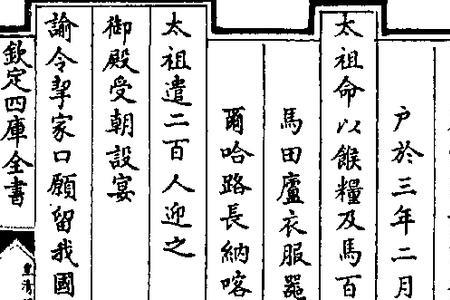 戶於三年二月
太祖命以餱糧及馬百
馬田廬衣服器
爾哈路長納喀
太祖遣二百人迎之
御殿受朝設宴
諭令挈家口願留我國
欽定四庫全書